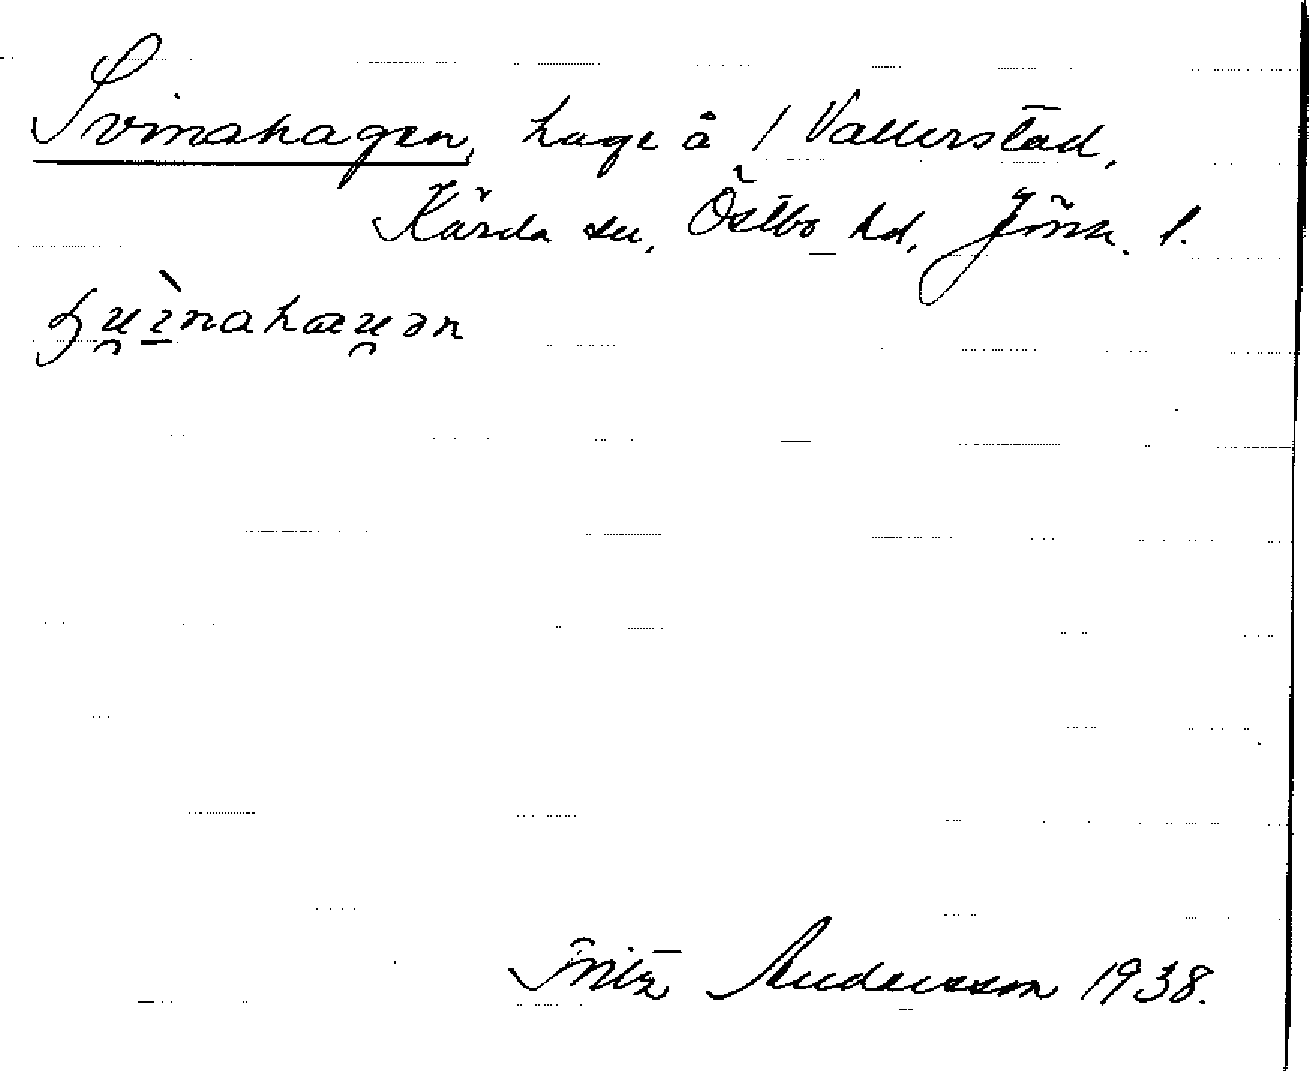 Svinahagen, hage å 1 Vallerstad,
Kärda sn, Östbo hd, Jönk. l.
Fritz Andersson 1938.